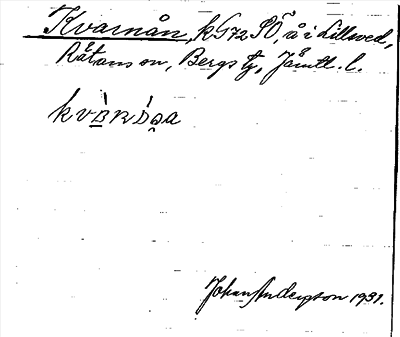 Kvarnån, k G72 SÖ, å i Lillsved,
Råtans sn, Bergs tg, Jämtl. l.
Johan Anderzon 1931.